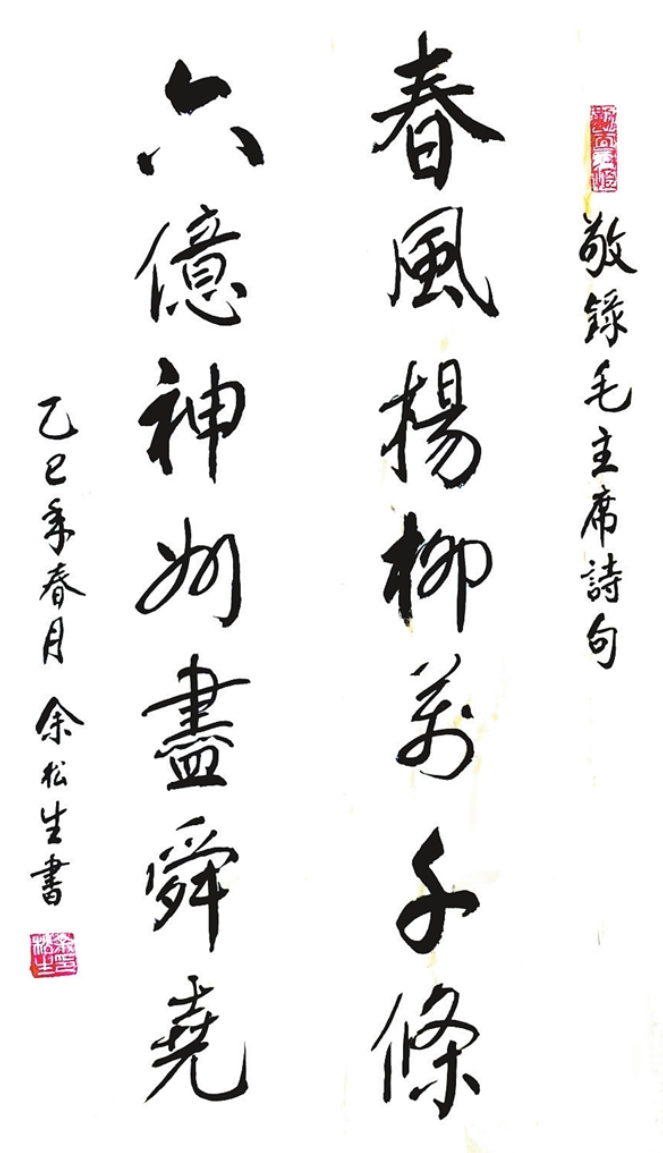 敬錄毛主席詩句
春風楊柳萬千條
六億神州盡舜堯
乙巳年春月 余松生書